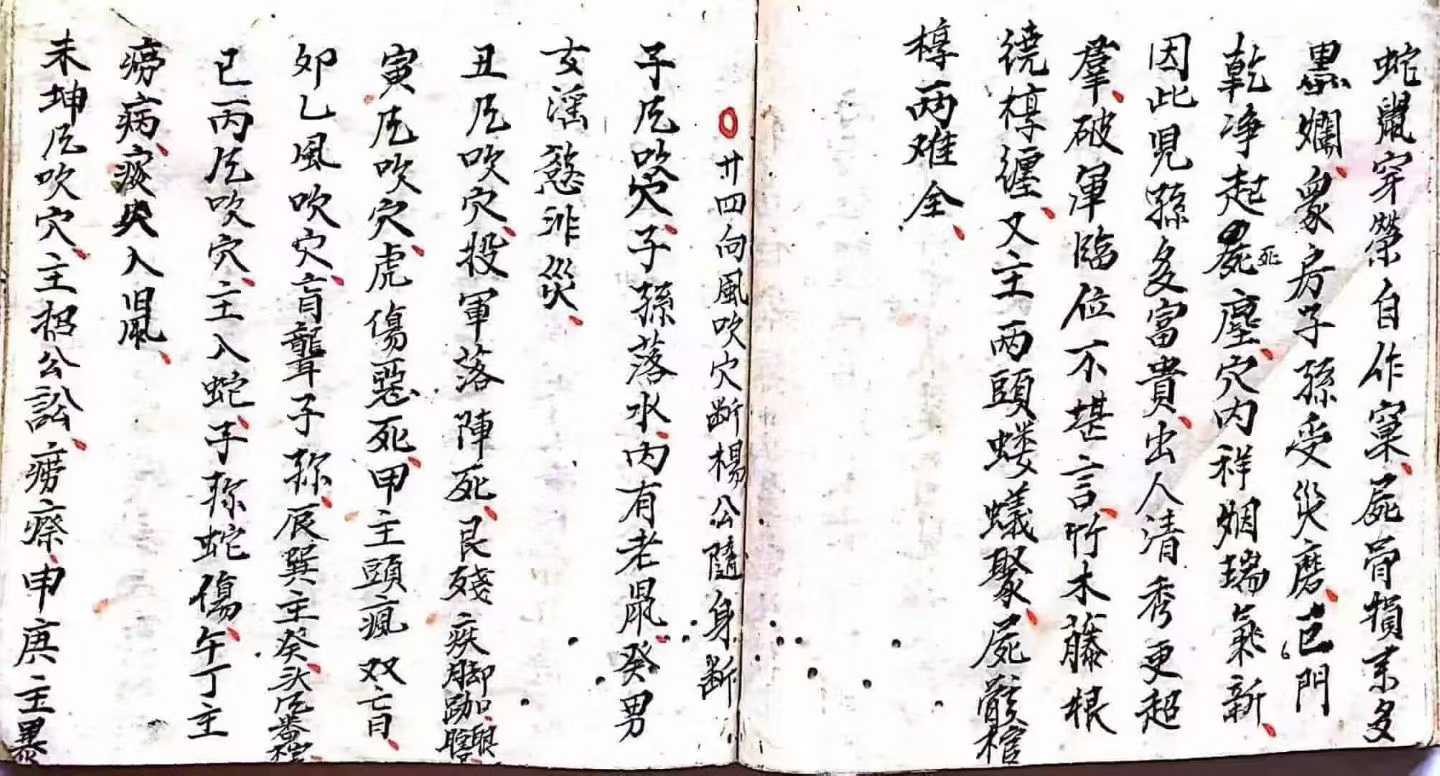 蛇鼠穿棨自作窠、屍骨損末多
黑爛、衆房子孫受災磨、屯門
乾净起屍死塵、穴内祥烟瑞氣新、
因此児孫多富貴、出人清秀更超
羣、破軍臨位不堪言、竹木藤根
繞椁纏、又主两頭螻蟻聚、屍骸棺
椁两难全、
廿四向風吹穴断楊公隨身断
子凨吹穴、子孫落水、内有老鼠、癸男
女滛慾非災、
丑凨吹穴、投軍落陣死、艮殘疾脚跏
寅凨吹穴、虎傷惡死、甲主頭瘋双亡盲、
夘乙風吹穴、盲聾子孫、辰巽主癸
巳丙凨吹穴、主入蛇、子孫蛇傷、午丁主
癆病、入風、
未坤凨吹穴、主招公訟、癆瘵、申庚主暴